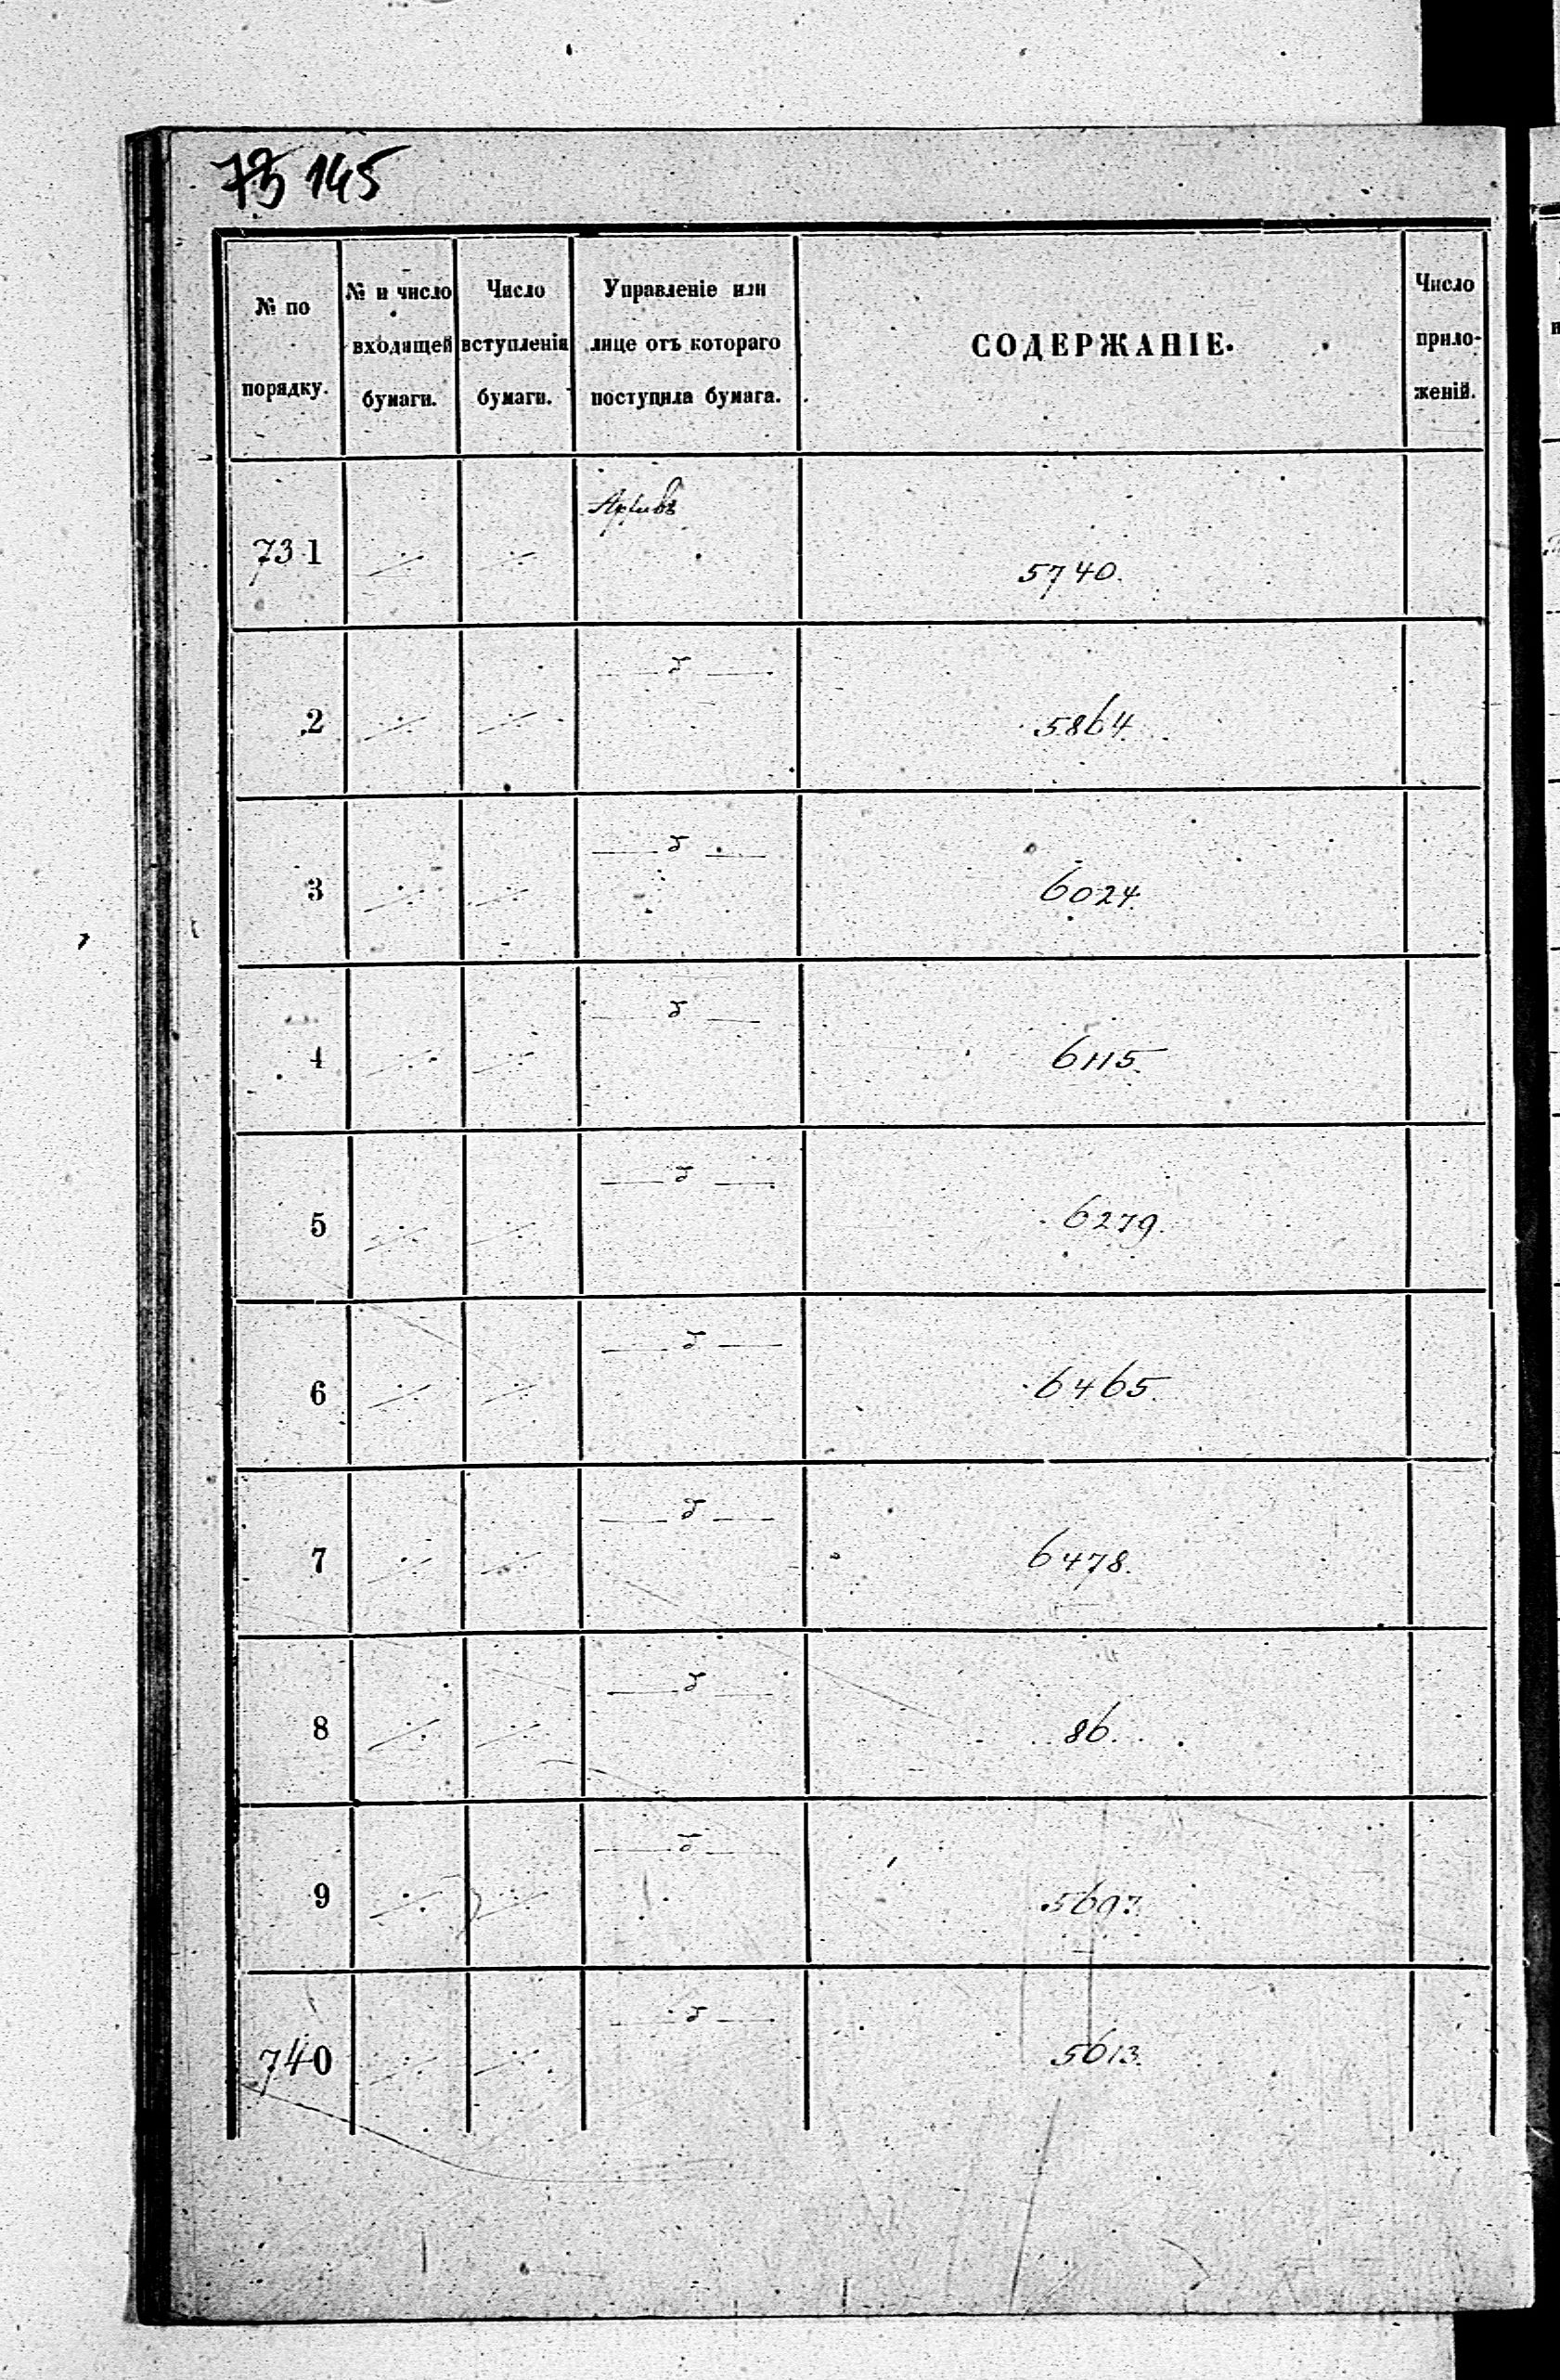 73 145
№ по порядку. № и число входящей бумаги. Число вступленія бумаги. Управленіе или лице отъ котораго поступила бумага. СОДЕРЖАНІЕ. Число приложеній.
731 ·/· ·/· Архивъ 5740.
2 ·/· ·/· — " — 5864.
3 ·/· ·/· — " — 6024.
4 ·/· ·/· — " — 6115.
5 ·/· ·/· — " — 6279.
6 ·/· ·/· — " — 6465.
7 ·/· ·/· — " — 6478.
8 ·/· ·/· — " — 86.
9 ·/· ·/· — " — 5697.
740 ·/· ·/· — " — 5613.